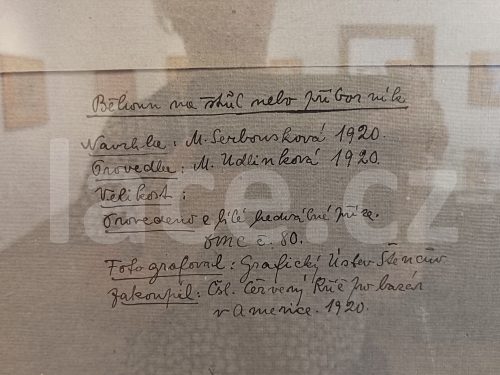 Běhoun na stůl nebo příborník
Navrhla: M. Serbousková 1920.
Provedla: M. Udlinková 1920.
Velikost:
Provedeno z bílé hedvábné příze.
DMC č. 80.
Fotografoval: Grafický Ústav Štencův
Zakoupil: Čsl. Červený Kříž pro bazar
v Americe. 1920.
lace.cz